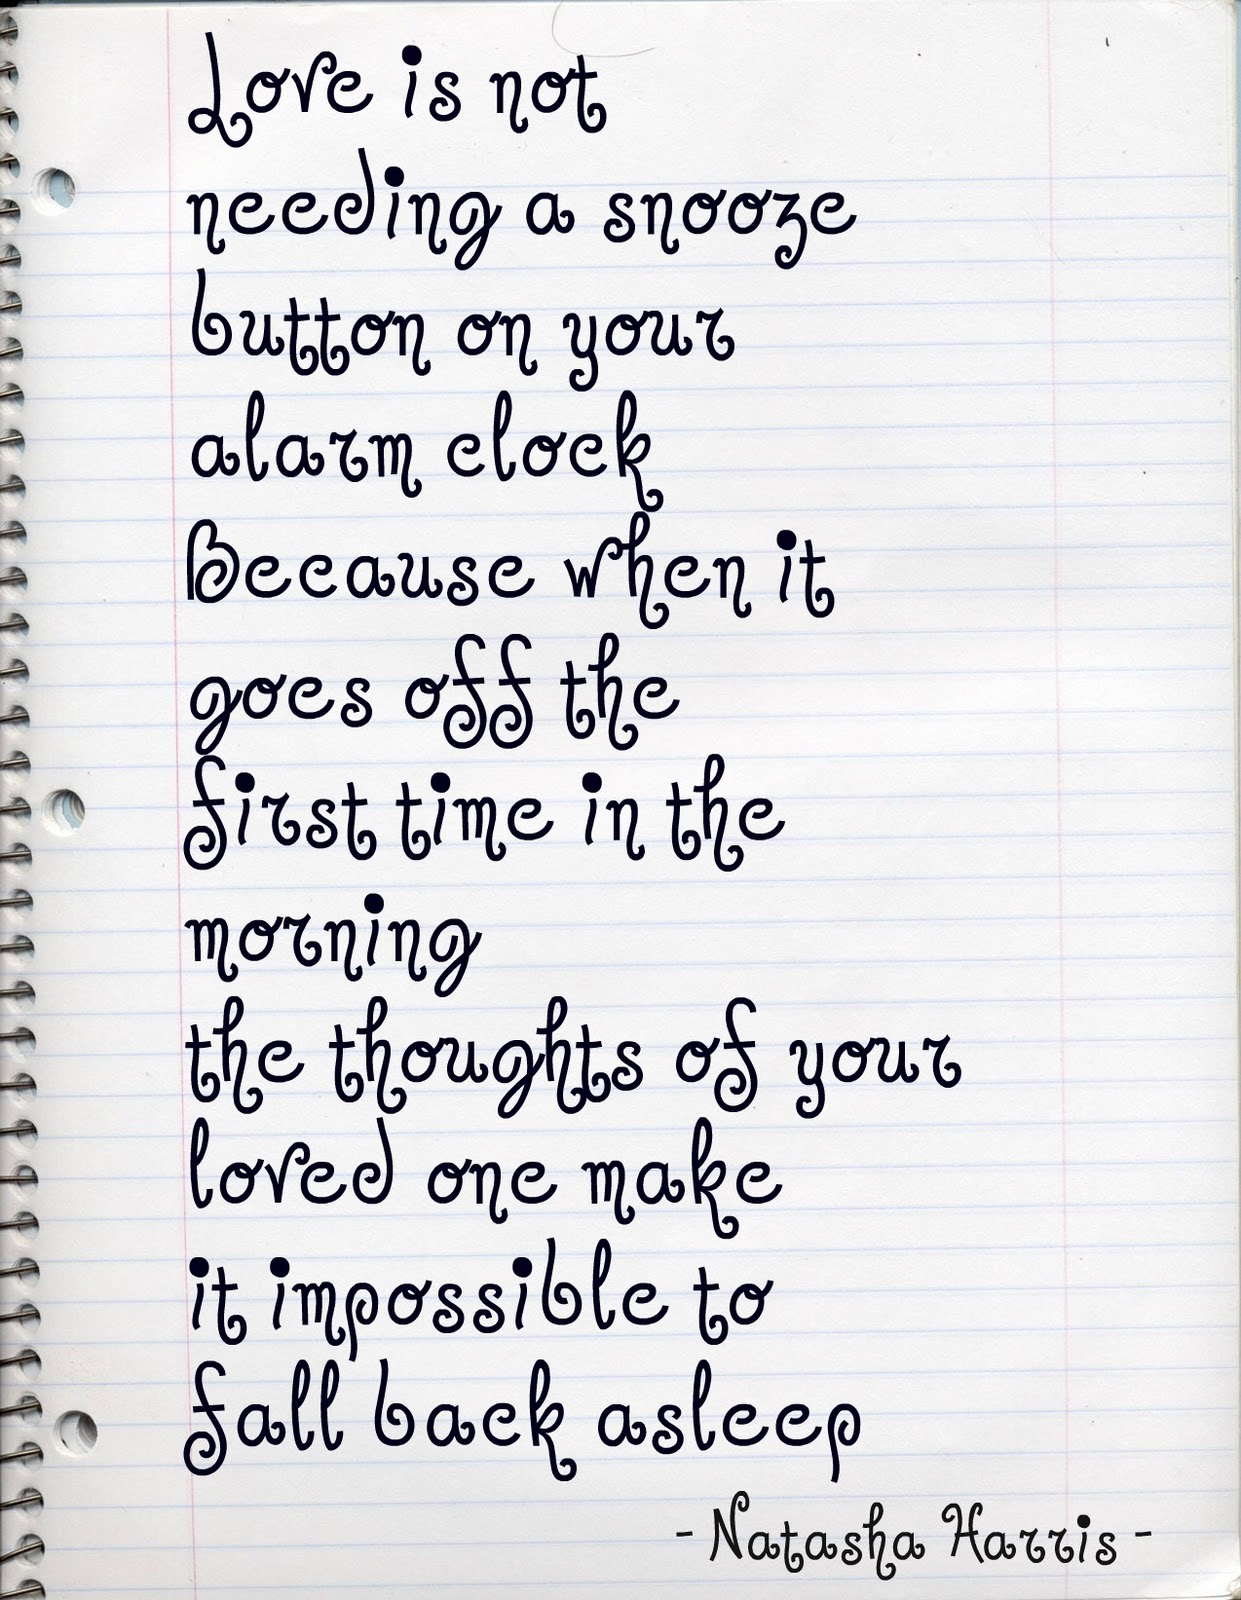 Love is not
needing a snooze
button on your
alarm clock
Because when it
goes off the
first time in the
morning
the thoughts of your
loved one make
it impossible to
fall back asleep
- Natasha Harris -